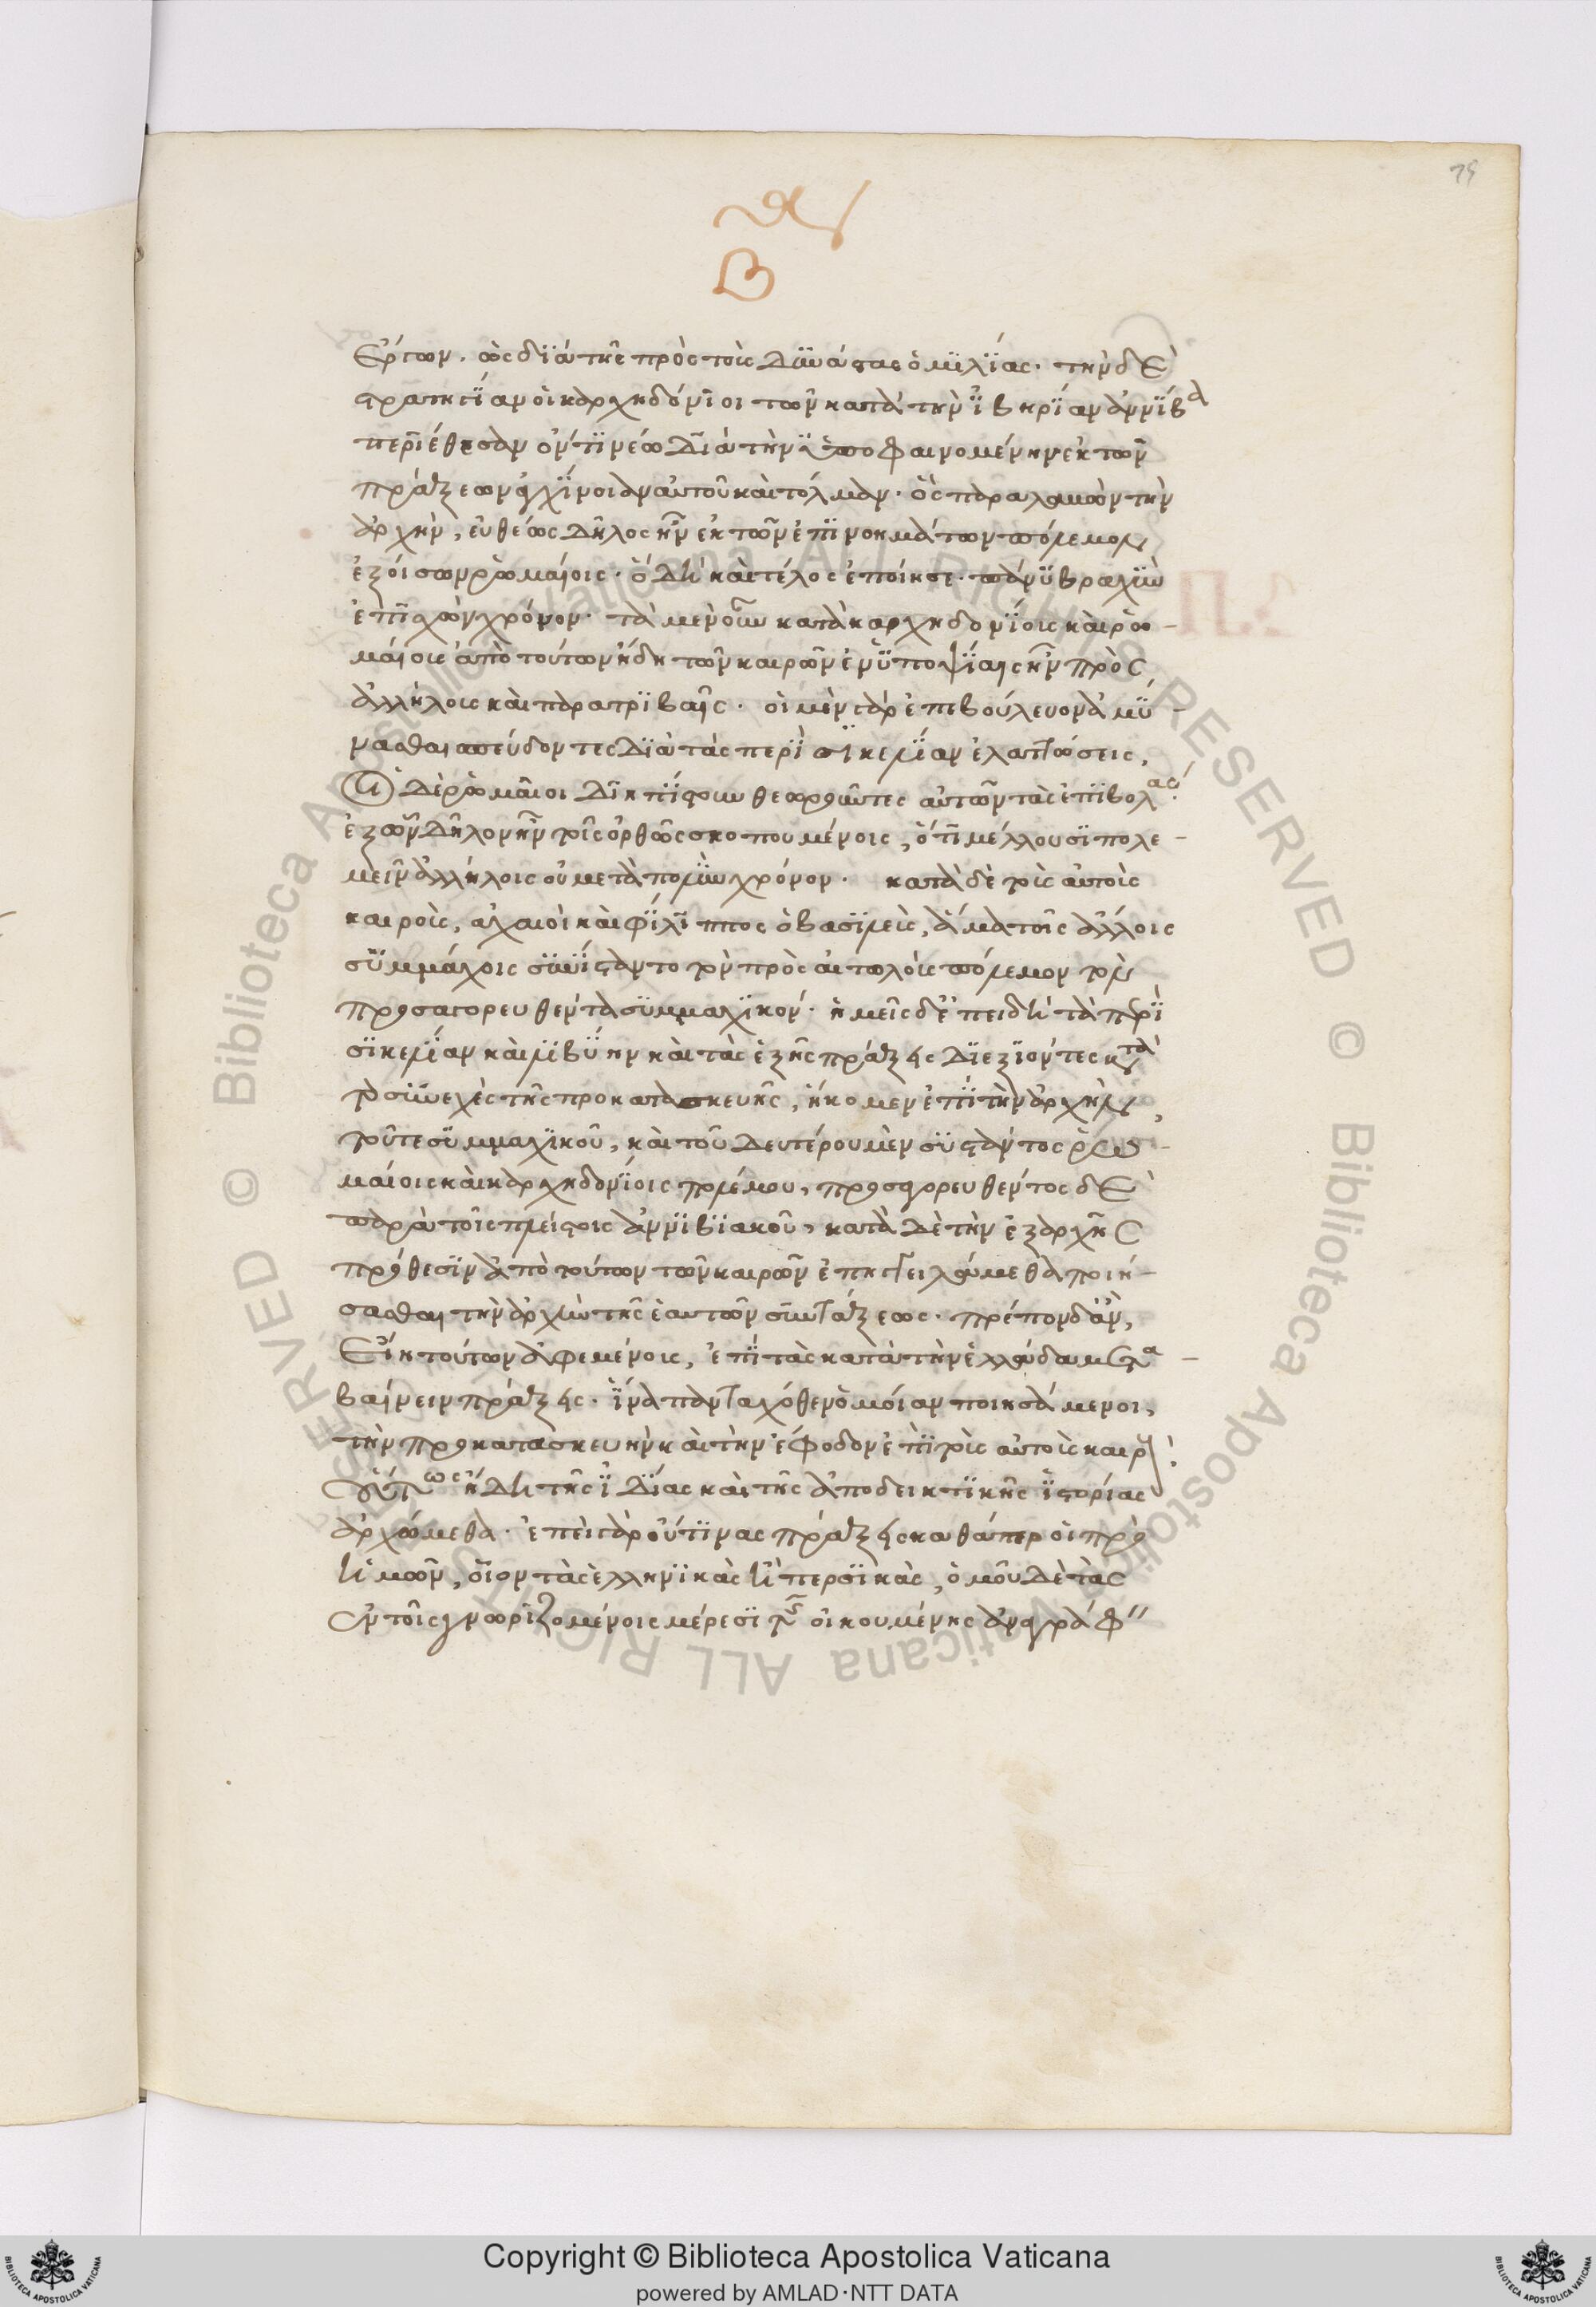 79
β
ἔργων, ὡς διὰ τῆς πρὸς τοὺς δυνάστας ὁμιλίας. τὴν δὲ
στρατηγίαν οἱ καρχηδόνιοι τῶν κατὰ τὴν ἰβηρίαν ἀννίβα
περιέθεσαν ὄντι νέω διὰ τὴν ὑποφαινομένην ἐκ τῶν
πράξεων ἀγχίνοιαν αὐτοῦ καὶ τόλμαν. ὃς παραλαβὼν τὴν
ἀρχὴν, εὐθέως δῆλος ἦν ἐκ τῶν ἐπινοημάτων πόλεμον
ἐξοίσων ῥωμαίοις. ὃ δὴ καὶ τέλος ἐποίησε. πάνυ βραχὺν
ἐπισχὼν χρόνον. τὰ μὲν οὖν κατὰ καρχηδονίους καὶ ῥω-
μαίους ἀπὸ τούτων ἤδη τῶν καιρῶν ἐν ὑποψίαις ἦν πρὸς
ἀλλήλους καὶ παρατριβαῖς. οἱ μὲν γὰρ ἐπεβούλευον ἀμύ-
νασθαι σπεύδοντες διὰ τὰς περὶ σικελίαν ἐλαττώσεις,
οἱ δὲ ῥωμαῖοι διηπίστουν θεωροῦντες αὐτῶν τὰς ἐπιβολάς.
ἐξ ὧν δῆλον ἦν τοῖς ὀρθῶς σκοπουμένοις, ὅτι μέλλουσι πολε-
μεῖν ἀλλήλοις οὐ μετὰ πολὺν χρόνον. κατὰ δὲ τοὺς αὐτοὺς
καιροὺς, ἀχαιοὶ καὶ φίλιππος ὁ βασιλεὺς, ἅμα τοῖς ἄλλοις
συμμάχοις συνίσταντο τὸν πρὸς αἰτωλοὺς πόλεμον τὸν
προσαγορευθέντα συμμαχικόν. ἡμεῖς δ' ἐπειδὴ τὰ περὶ
σικελίαν καὶ λιβύην καὶ τὰς ἑξῆς πράξεις διεξιόντες κατὰ
τὸ συνεχὲς τῆς προκατασκευῆς, ἥκομεν ἐπὶ τὴν ἀρχὴν,
τοῦ τε συμμαχικοῦ, καὶ τοῦ δευτέρου μὲν συστάντος ῥω-
μαίοις καὶ καρχηδονίοις πολέμου, προσαγορευθέντος δὲ
παρὰ τοῖς πλείστοις ἀννιβιακοῦ, κατὰ δὲ τὴν ἐξ ἀρχῆς
πρόθεσιν ἀπὸ τούτων τῶν καιρῶν ἐπηγγειλάμεθα ποιή-
σασθαι τὴν ἀρχὴν τῆς ἑαυτῶν συντάξεως. πρέπον δ' ἂν,
εἴη τούτων ἀφεμένους, ἐπὶ τὰς κατὰ τὴν ἑλλάδα μετα-
βαίνειν πράξεις. ἵνα πανταχόθεν ὁμοίαν ποιησάμενοι,
τὴν προκατασκευὴν καὶ τὴν ἔφοδον ἐπὶ τοὺς αὐτοὺς καιρούς.
οὕτως ἤδη τῆς ἰδίας καὶ τῆς ἀποδεικτικῆς ἱστορίας
ἀρχώμεθα. ἐπεὶ γὰρ οὔ τινας πράξεις καθάπερ οἱ πρὸ
ἡμῶν, οἷον τὰς ἑλληνικὰς ἢ περσικὰς, ὁμοῦ δὲ τὰς
ἐν τοῖς γνωριζομένοις μέρεσι τῆς οἰκουμένης ἀναγράφ
Copyright © Biblioteca Apostolica Vaticana
powered by AMLAD·NTT DATA